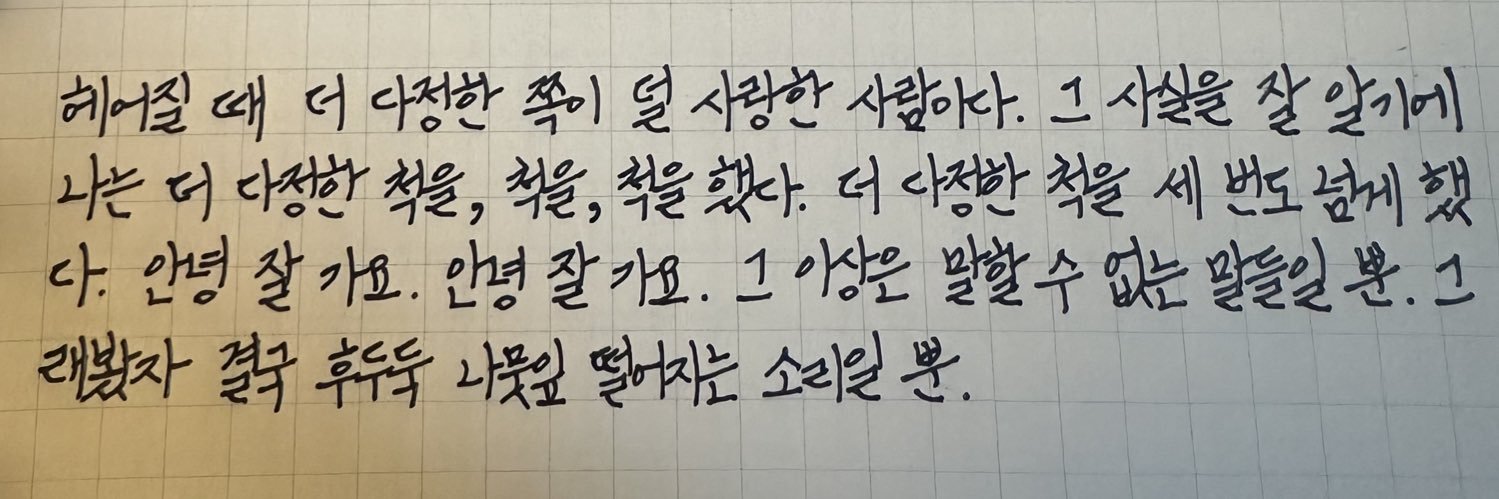 헤어질 때 더 다정한 쪽이 덜 사랑한 사람이다. 그 사실을 잘 알기에
나는 더 다정한 척을, 척을, 척을 했다. 더 다정한 척을 세 번도 넘게 했
다. 안녕 잘 가요. 안녕 잘 가요. 그 이상은 말할 수 없는 말들일 뿐. 그
래봤자 결국 후두둑 나뭇잎 떨어지는 소리일 뿐.